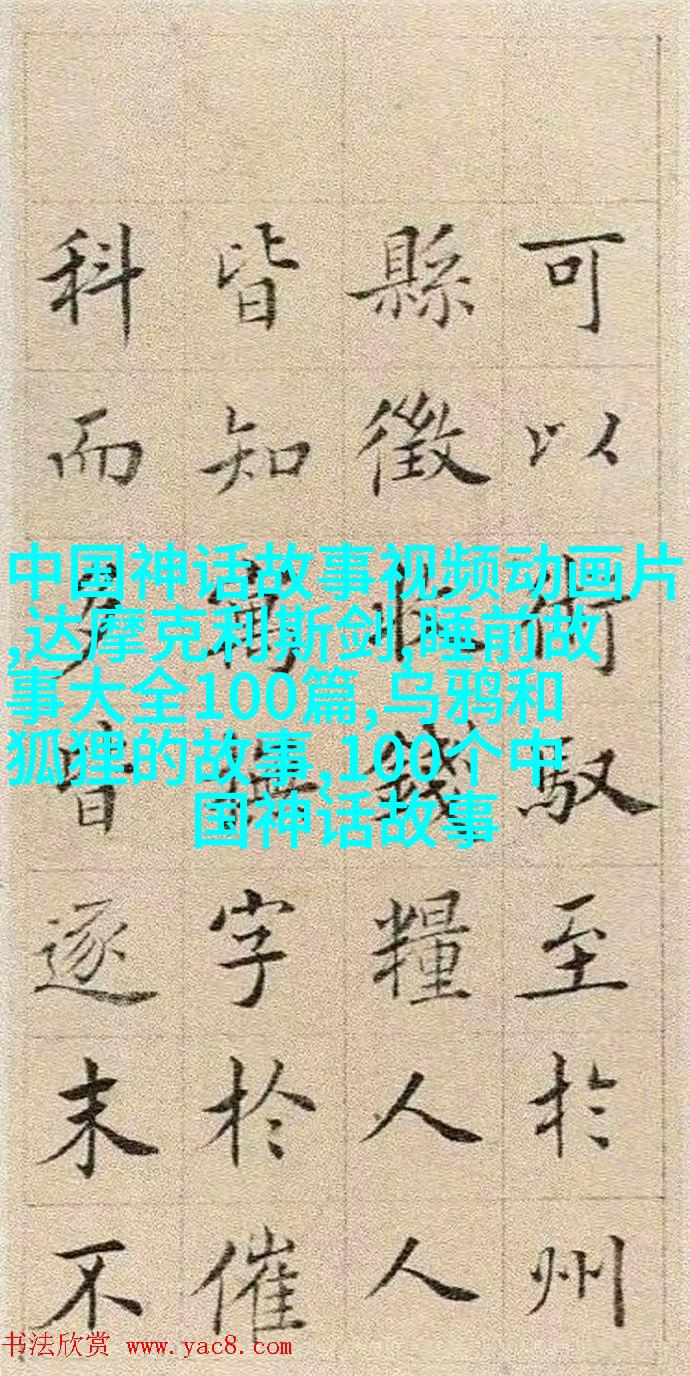 可以術馭至於州
縣徵收錢糧人人
皆知寓字於催
科而皆逐末不
中国神话故事视频动画片
,达摩克利斯剑,睡前故
事大全100篇,乌鸦和
狐狸的故事,100个中
国神话故事
书法欣赏 www.yac8.com